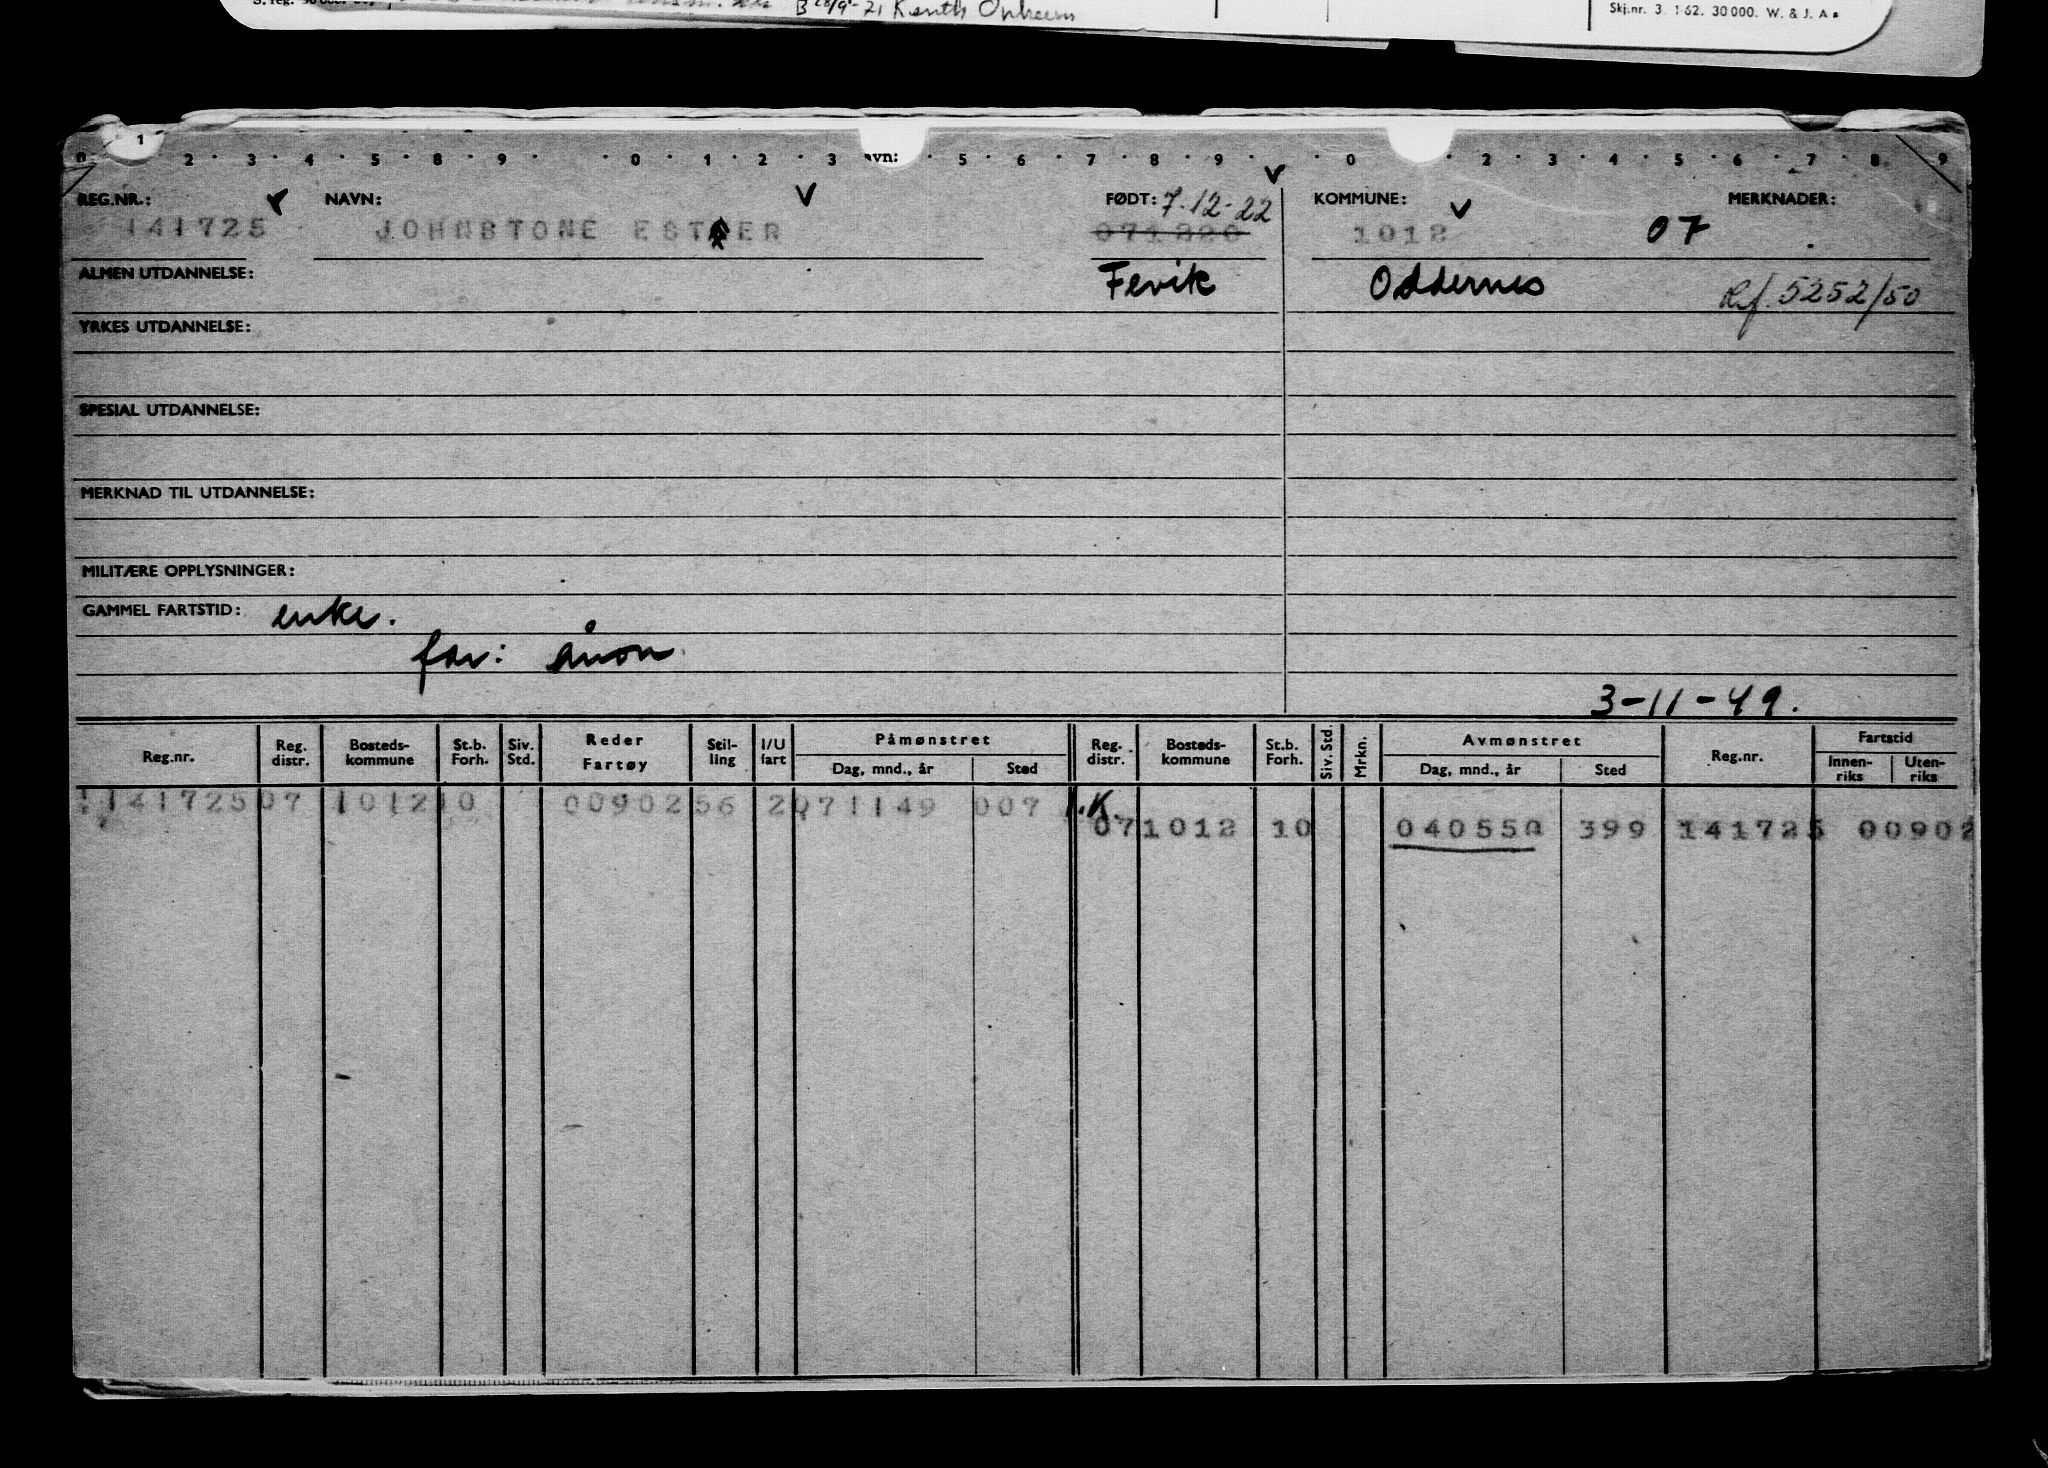 B 28/9-71 Kenth Opheim
Skj.nr. 3 1-62. 30 000. W. & J. A s
1
0 · 2 · 3 · 4 · 5 · 8 · 9 · · 0 · 1 · 2 · 3 avn: · 5 · 6 · 7 · 8 · 9 · · 0 · 2 · 3 · 4 · 5 · 6 · 7 · 8 · 9
REG.NR.: NAVN: FØDT: 7-12-22 KOMMUNE: MERKNADER:
141725 JOHNSTONE ESTHER 071220 1012 07
ALMEN UTDANNELSE: Fevik Oddernes Ref. 5252/50
YRKES UTDANNELSE:
SPESIAL UTDANNELSE:
MERKNAD TIL UTDANNELSE:
MILITÆRE OPPLYSNINGER:
GAMMEL FARTSTID: enke.
far: ånon
3-11-49.
Reg.nr. Reg. distr. Bosteds-kommune St.b. Forh. Siv. Std. Reder Fartøy Stil-ling I/U fart Påmønstret Dag, mnd., år Sted Reg. distr. Bosteds-kommune St.b. Forh. Siv. Std. Mrkn. Avmønstret Dag, mnd., år Sted Reg.nr. Fartstid Innen-riks Uten-riks
141725 07 1012 10 00902 56 2 071149 007 I.K.
07 1012 10 040550 399 141725 00902